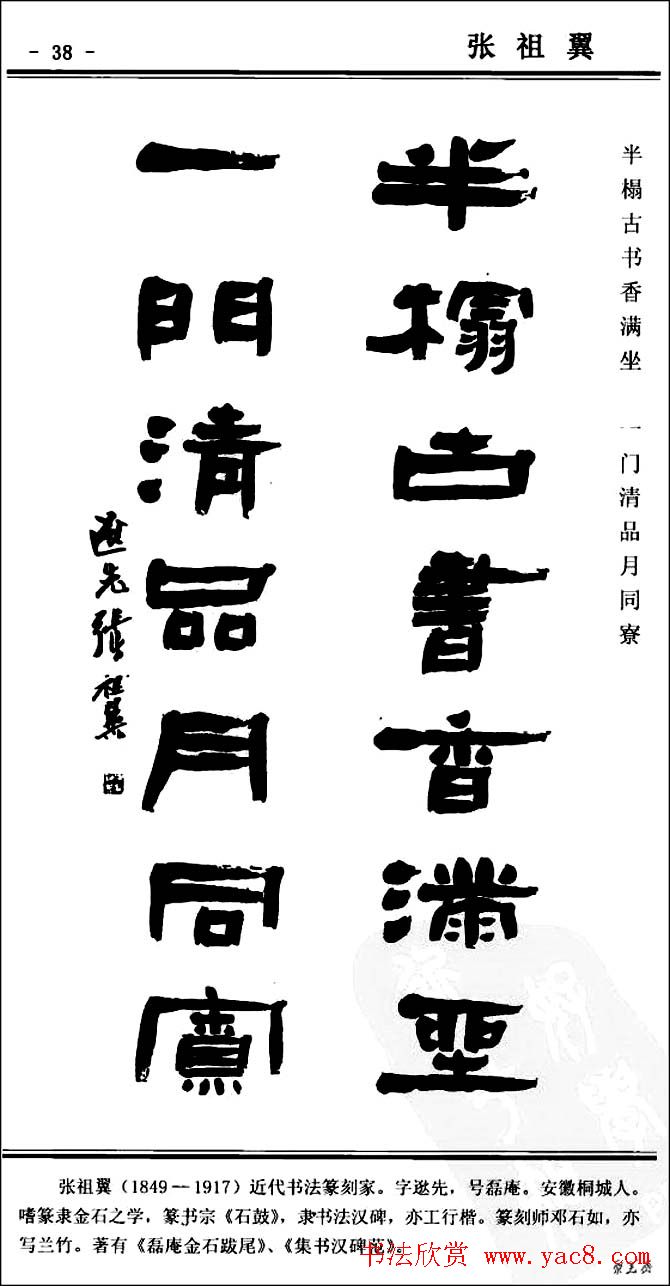 - 38 -
张祖翼
半榻古书香满坐 一门清品月同寮
半榻古書香滿坐
一門清品月同寮
逖先張祖翼
张祖翼（1849－1917）近代书法篆刻家。字逖先，号磊庵。安徽桐城人。
嗜篆隶金石之学，篆书宗《石鼓》，隶书法汉碑，亦工行楷。篆刻师邓石如，亦
写兰竹。著有《磊庵金石跋尾》、《集书汉碑范》。
书法欣赏 www.yac8.com